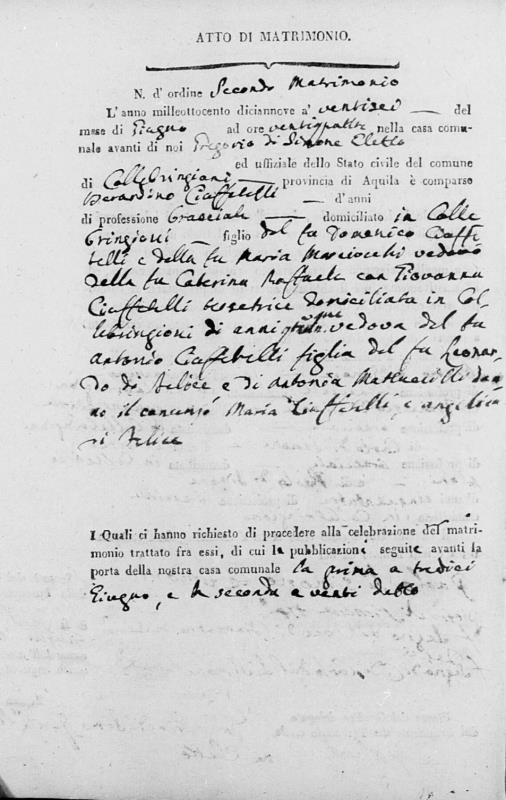 ATTO DI MATRIMONIO.
N. d' ordine Secondo Matrimonio
L' anno milleottocento diciannove a' ventisei — del
mese di Giugno ad ore ventiquattro nella casa comu-
nale avanti di noi Gregorio di Simone Eletto
ed uffiziale dello Stato civile del comune
di Collebringioni provincia di Aquila è comparso
Berardino Ciaffetelli — d' anni
di professione — domiciliato in Colle
Bringioni — figlio del fu Domenico Ciaffe
telli e della fu Maria vedovo
della fu Caterina Raffaele con Giovanna
Ciaffetelli domiciliata in Col-
lebringioni di anni vedova del fu
Antonio Ciaffetelli figlia del fu Leonar-
do di Felice e di Antonia dan-
no il consenso Maria Ciaffetelli e Angelica
di Felice
I Quali ci hanno richiesto di procedere alla celebrazione del matri-
monio trattato fra essi, di cui la pubblicazione seguite avanti la
porta della nostra casa comunale la prima a tredici
Giugno, e la seconda a venti detto